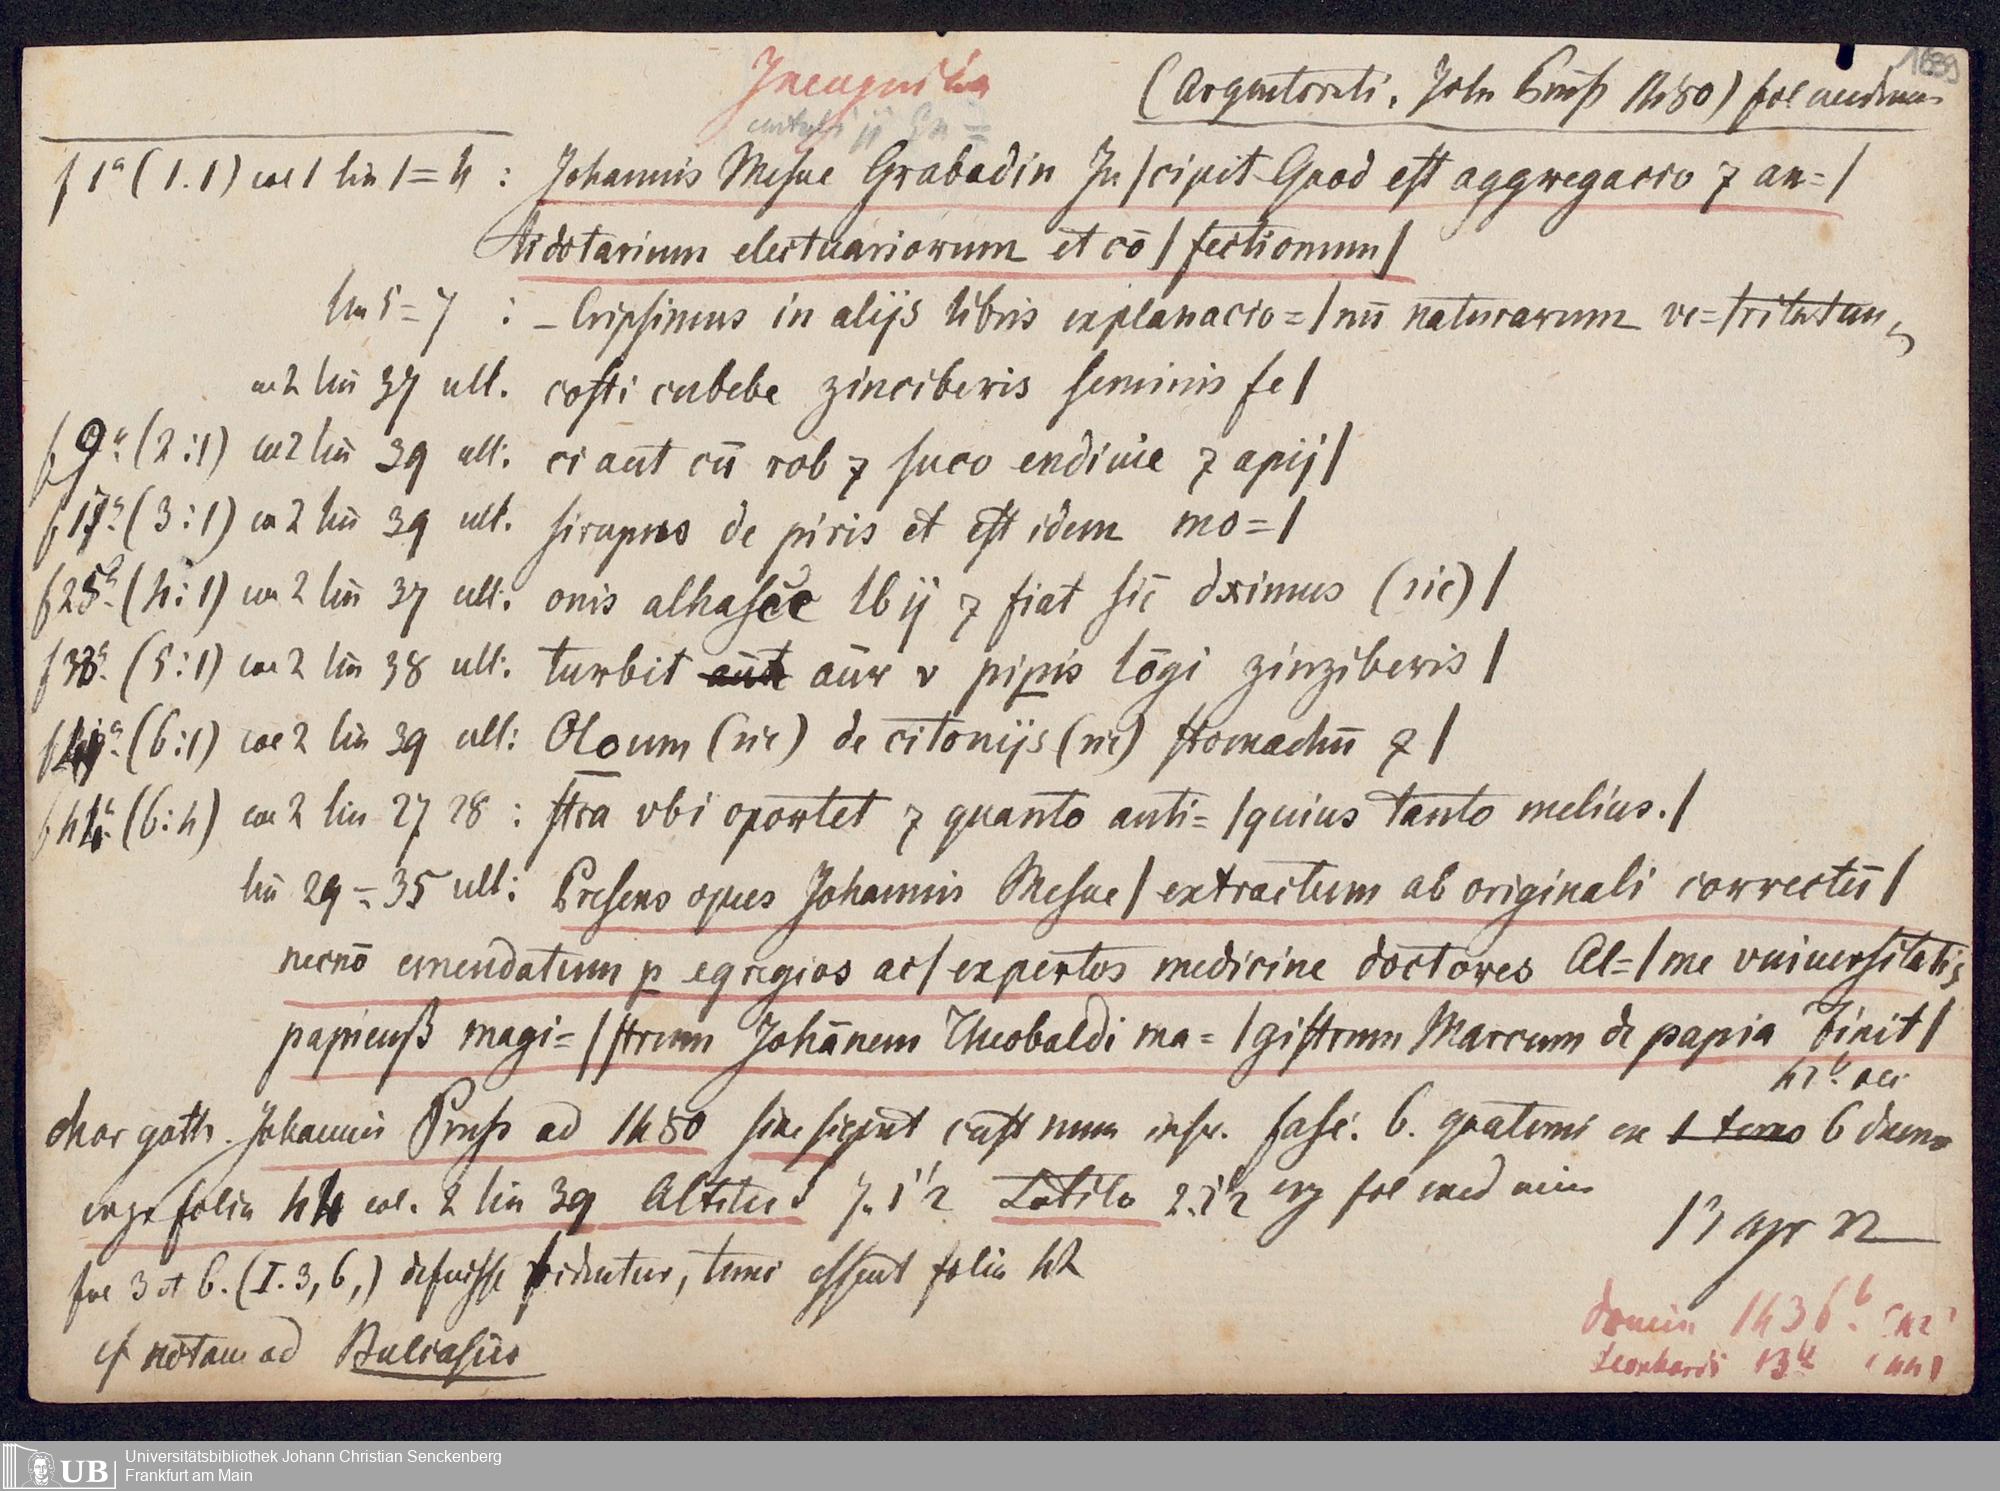 1839
Incognita
(Argentorati. Joh Prüß 1480) fol
f 1a (1.1) col 1 lin 1=4 : Johannis Mesue Grabadin In/cipit Quod est aggregacio ⁊ an=/
tidotarium electuariorum et cō/fectionum/
lin 5=7 : _Cripsimus in alijs libris explanacio=/nū naturarum ve=/ritatem
col 2 lin 37 ult. costi cubebe zinciberis seminis fe/
f 9a (2:1) col 2 lin 39 ult. ci aut cū rob ⁊ suco endiuie ⁊ apij/
f 17a (3:1) col 2 lin 39 ult. sirupus de piris et est idem mo=/
f 25a (4:1) col 2 lin 37 ult. onis alhasce lb ij ⁊ fiat sic̄ dximus (sic)/
f 33a (5:1) col 2 lin 38 ult. turbit aūr v pipis lōgi zinziberis/
f 41a (6:1) col 2 lin 39 ult: Oloum (sic) de citonijs (sic) stomachū ⁊/
f 44a (6:4) col 2 lin 27 28 : stra vbi oportet ⁊ quanto anti=/quius tanto melius./
lin 29=35 ult: Presens opus Johannis Mesue/extractum ab originali correctū/
necnō emendatum p egregios ac/expertos medicine doctores Al=/me vniuersitatis
papiensß magi=/strum Johānem Theobaldi ma=/gistrum Marcum de papia finit/
char goth. Johannis Prüß ad 1480 sine sign et cust num fasc. 6. quaterni 6
ergo folia 44 col. 2 lin 39 Altitud 7. 1/2 Latitu 2. 1/2 fol med min
17 apr 22
fol 3 et 6. (I. 3, 6,) defuisse videntur, tunc essent folia 42
cf notam ad Bulcasis
domin 1436b
Leonhardi 13
UB Universitätsbibliothek Johann Christian Senckenberg
Frankfurt am Main